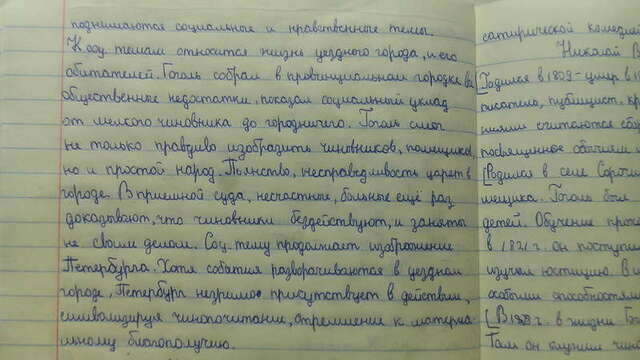 поднимаются социальные и нравственные темы.
К соц. темам относится жизнь уездного города, и его
обитателей. Гоголь собрал в провинциальном городке все
общественные недостатки, показал социальный уклад
от мелкого чиновника до городничего. Гоголь смог
не только правдиво изобразить чиновников, помещиков,
но и простой народ. Пьянство, несправедливость царят в
городе. В приемной суда, несчастные, больные ещё раз
доказывают, что чиновники бездействуют, и заняты
не своим делом. Соц. тему продолжает изображение
Петербурга. Хотя события разворачиваются в уездном
городе, Петербург незримо присутствует в действии,
символизируя чинопочитание, стремление к материа
льному благополучию.
сатирической комедией
Николай В
[Родился в 1809 - умер в 1
писатель, публицист, кр
посвященное обычаям и
[Родился в селе Сороч
мещика. Гоголь был
детей. Обучение прохо
в 1821 г. он поступи
изучал юстицию. В
особыми способностям
[В 1828 г. в жизни Гог
Там он служил чино